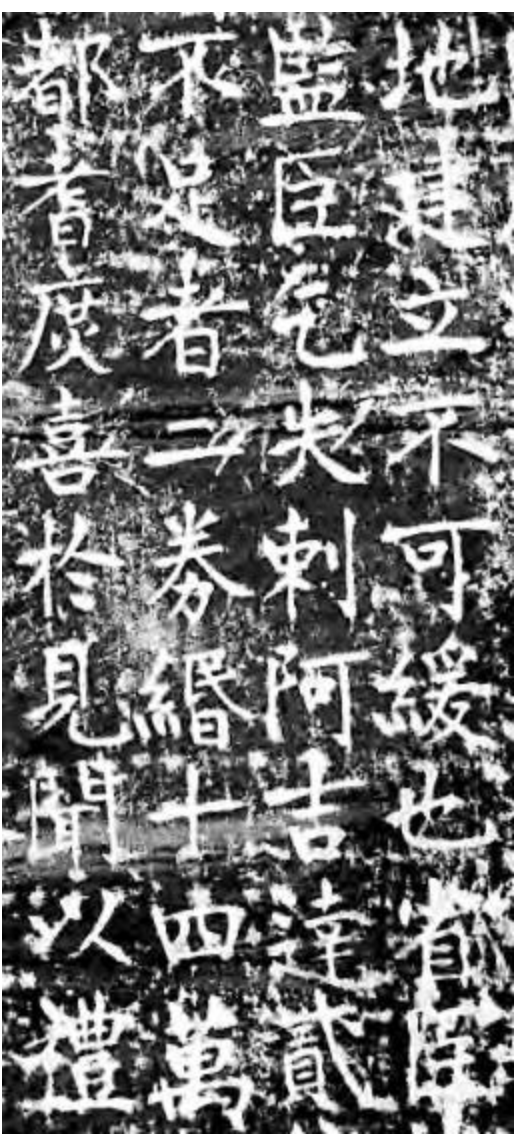 地建立不可緩也
監臣乞失剌阿吉達貳
不足者券緡十四萬
都耆庶喜於見聞以禮